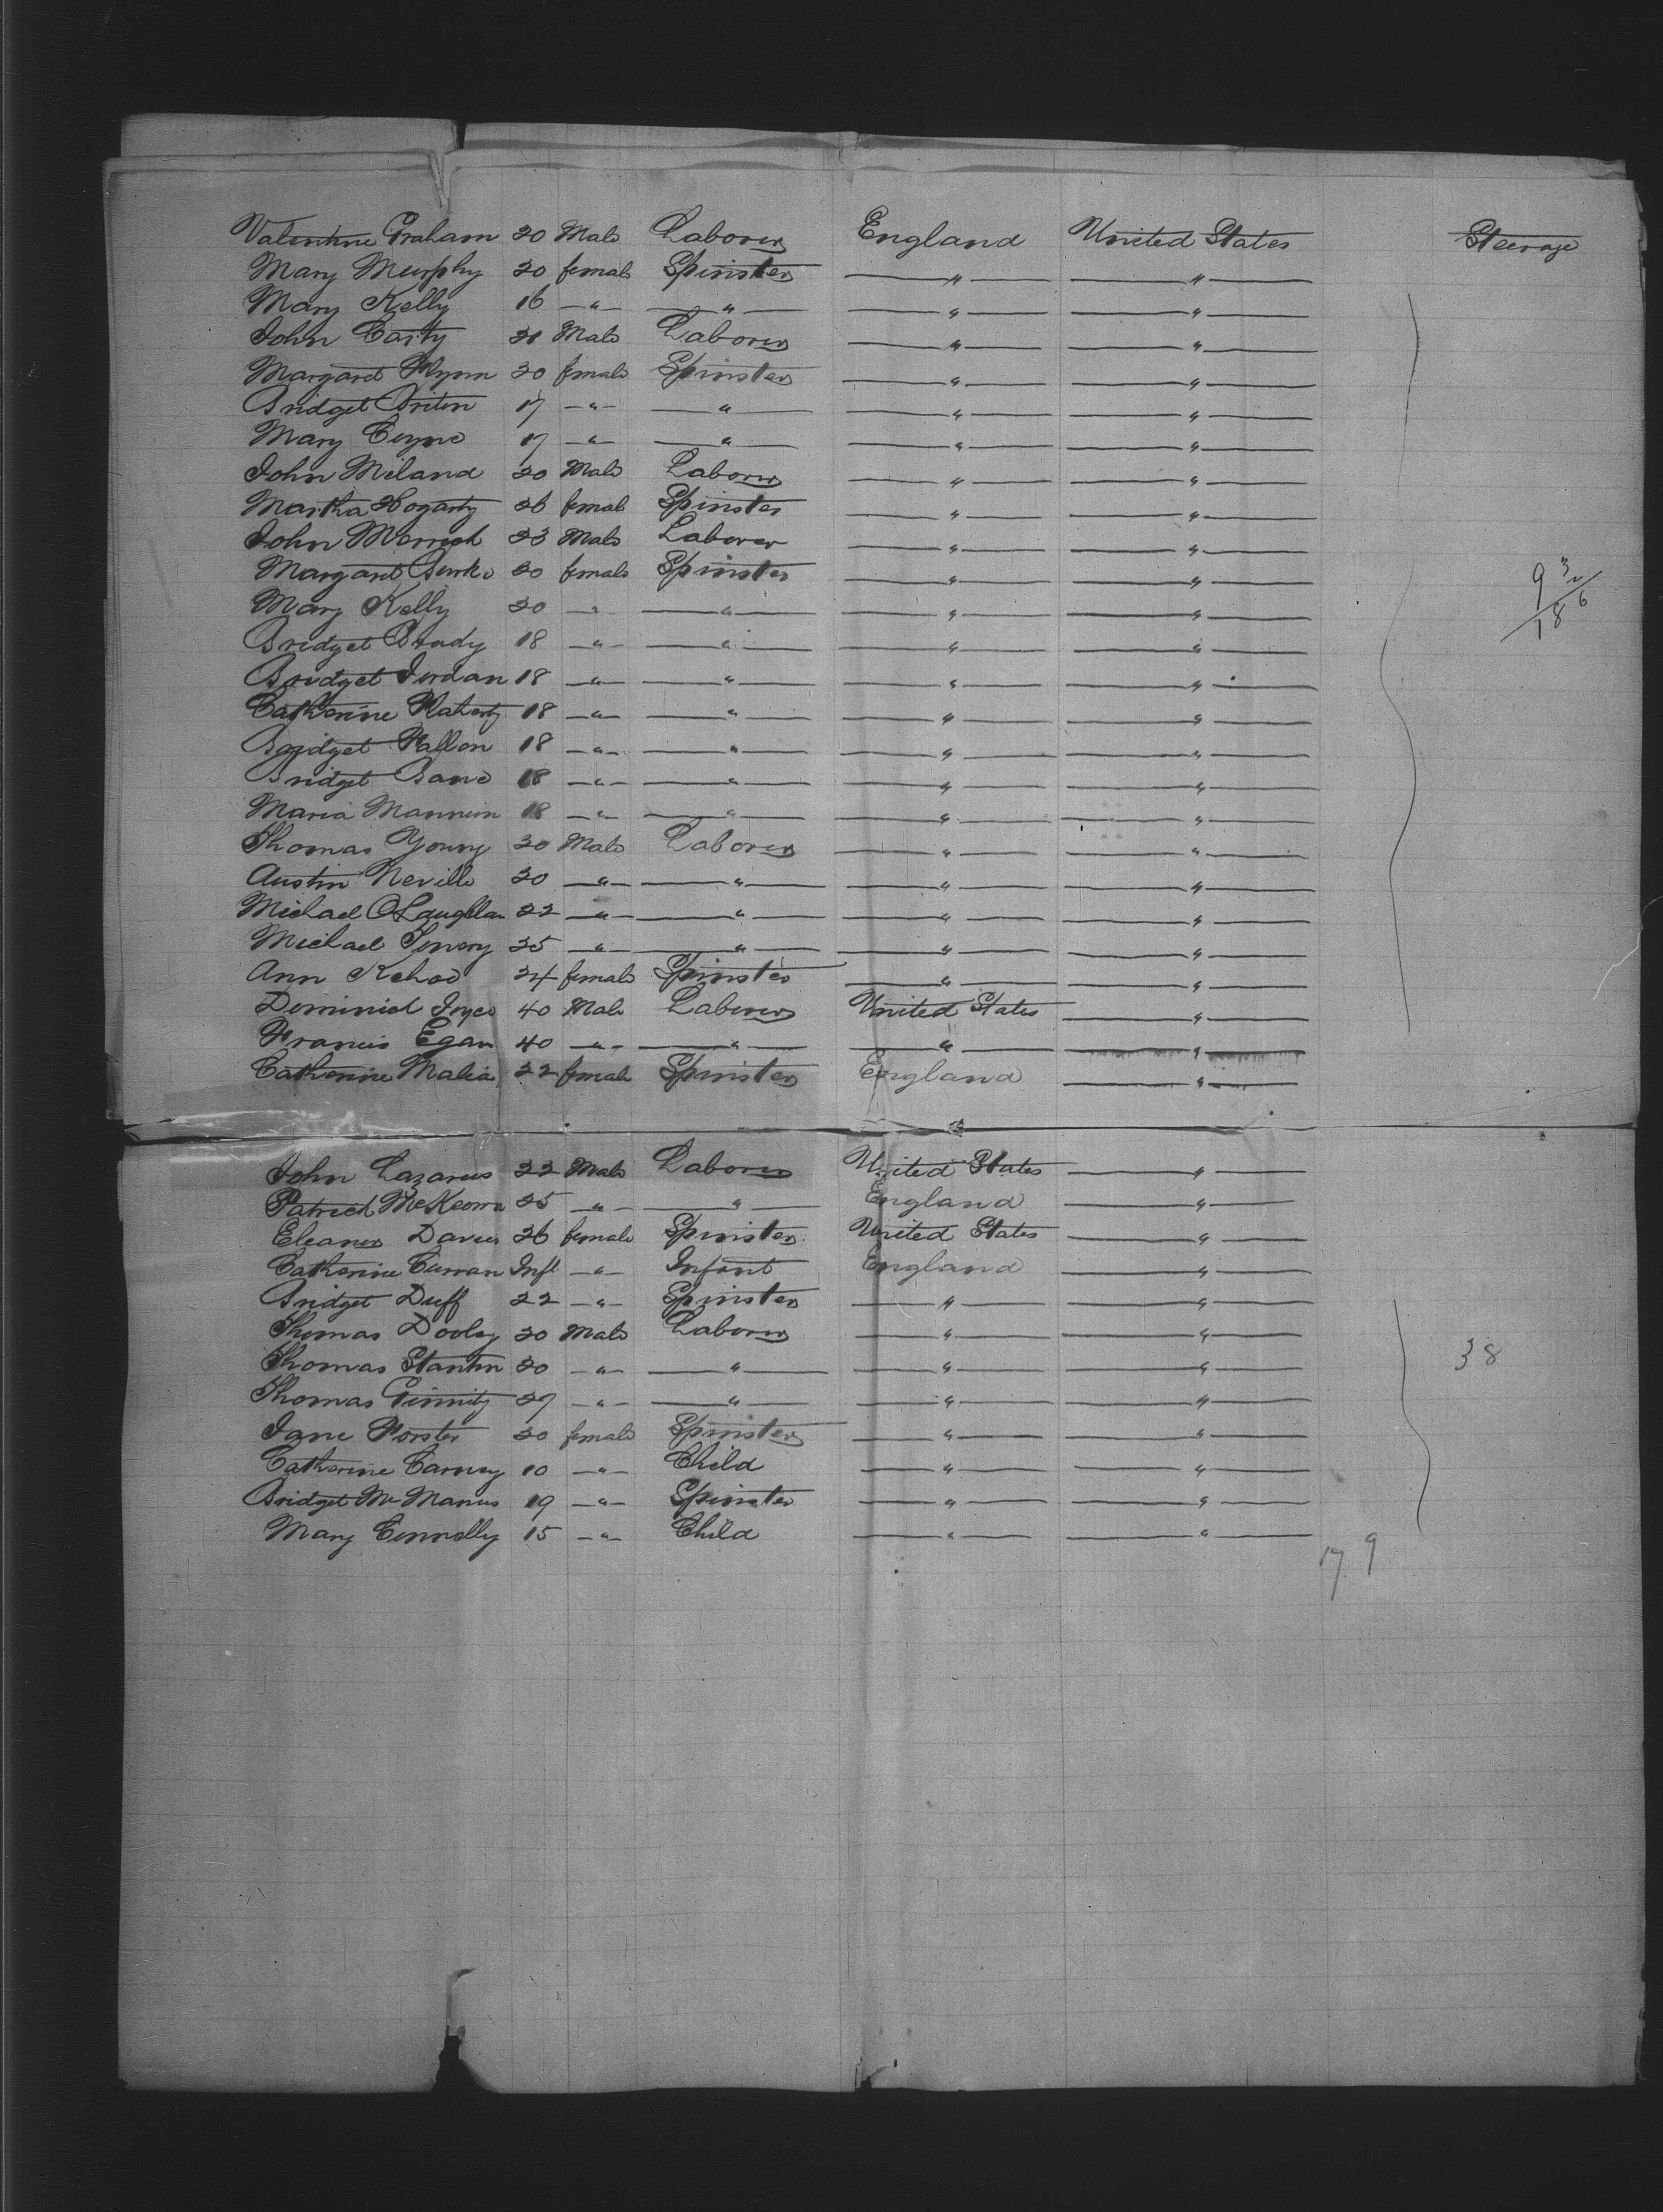 Valentine Graham 20 Male Laborer England United States Steerage
Mary Murphy 20 female Spinster " "
Mary Kelly 16 " " " "
John Carty 21 Male Laborer " "
Margaret Flynn 20 female Spinster " "
Bridget 17 " " " "
Mary Coyne 17 " " " "
John Meland 20 Male Laborer " "
Martha Hogarty 26 female Spinster " "
John 23 Male Laborer " "
Margaret Burke 20 female Spinster " "
Mary Kelly 20 " " " "
Bridget Brady 18 " " " "
Bridget Jordan 18 " " " "
Catherine Flaherty 18 " " " "
Bridget Fallon 18 " " " "
Bridget Bane 18 " " " "
Maria Mannion 18 " " " "
Thomas Young 20 Male Laborer " "
Austin Neville 20 " " " "
Michael 22 " " " "
Michael 25 " " " "
Ann Kehoe 24 female Spinster " "
Dominick Joyce 40 Male Laborer United States "
Francis Egan 40 " " " "
Catherine Malia 22 female Spinster England "
John Lazarus 22 Male Laborer United States "
Patrick McKeown 25 " " England "
Eleanor Davies 26 female Spinster United States "
Catherine Curran Inft " Infant England "
Bridget Duff 22 " Spinster " "
Thomas Dooley 20 Male Laborer " "
Thomas Stanton 20 " " " "
Thomas Ginnity 29 " " " "
Jane Forster 20 female Spinster " "
Catherine Carney 10 " Child " "
Bridget McManus 19 " Spinster " "
Mary Connolly 15 " Child " "
38
179